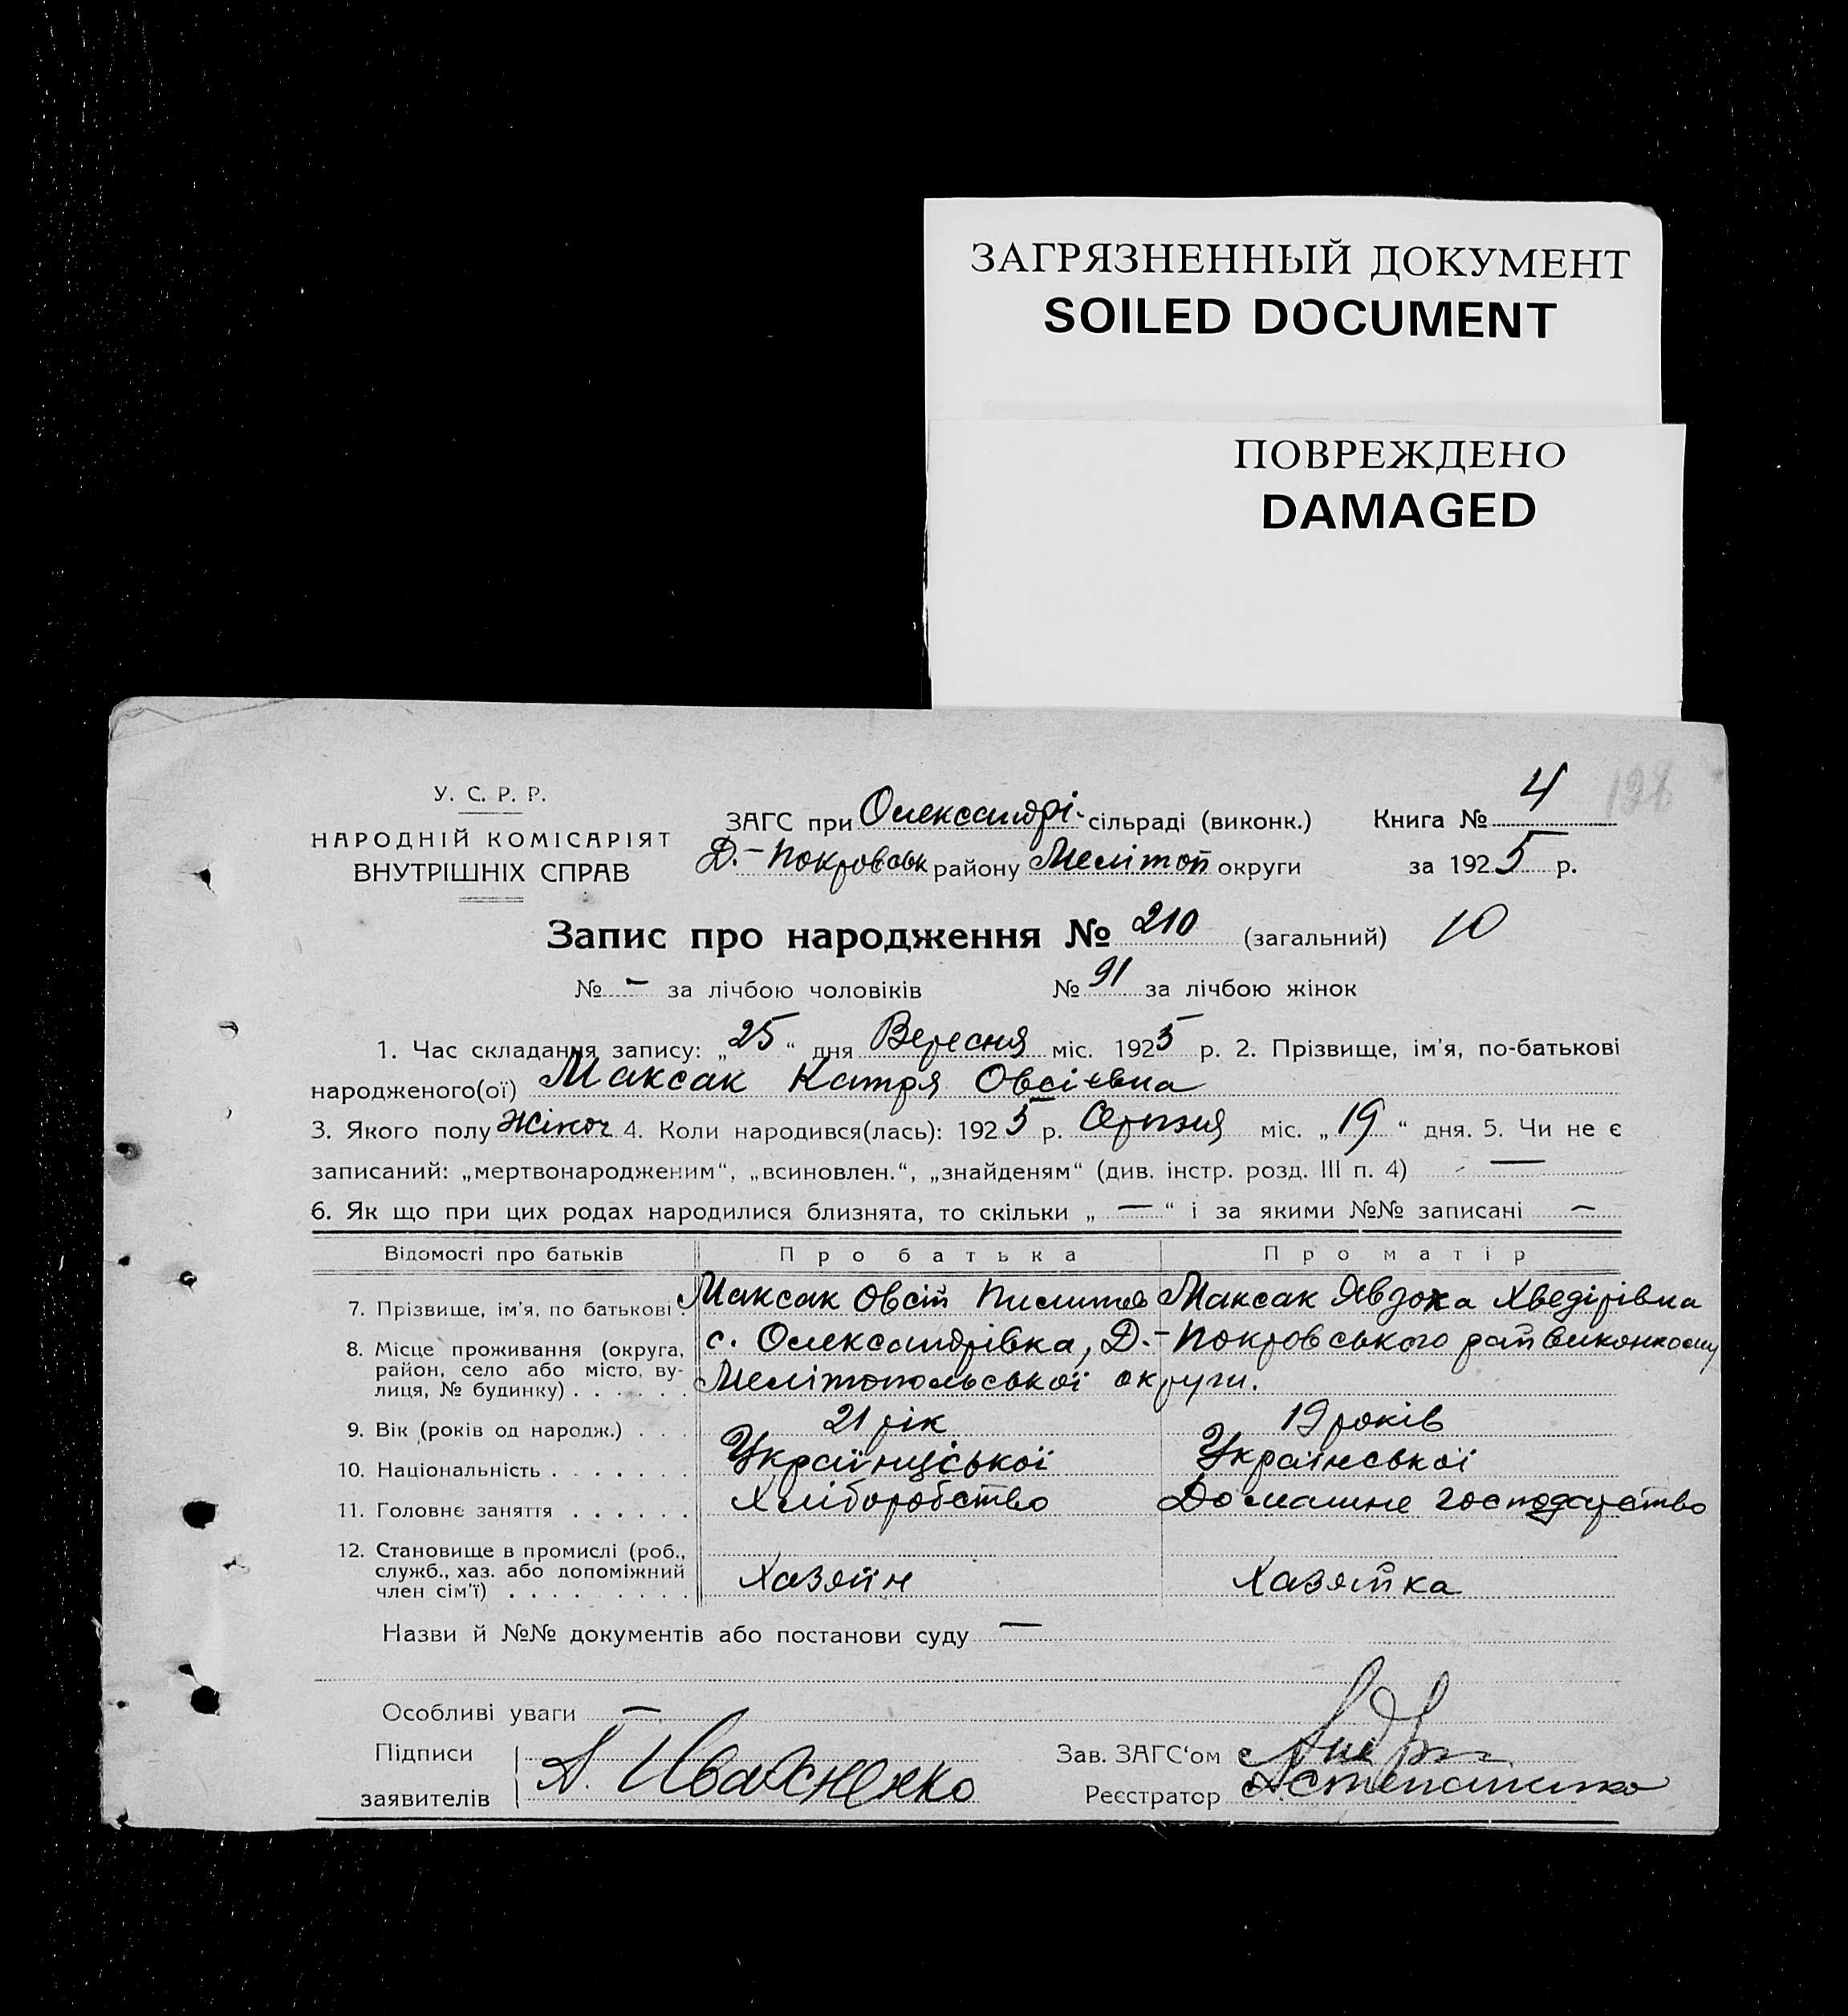 ЗАГРЯЗНЕННЫЙ ДОКУМЕНТ
SOILED DOCUMENT
ПОВРЕЖДЕНО
DAMAGED
У. С. Р. Р.
НАРОДНІЙ КОМІСАРІЯТ
ВНУТРІШНІХ СПРАВ
ЗАГС при Олександрі- сільраді (виконк.) Книга № 4
Д.-Покровськ району Мелітоп округи за 1925 р.
Запис про народження № 210 (загальний) 10
№ - за лічбою чоловіків № 91 за лічбою жінок
1. Час складання запису: „25“ дня Вересня міс. 1925 р. 2. Прізвище, ім'я, по-батькові
народженого(ої) Максак Катря Овсіевна
3. Якого полу жіноч 4. Коли народився(лась): 1925 р. Серпня міс. „19“ дня. 5. Чи не є
записаний: „мертвонародженим“, „всиновлен.“, „знайденям“ (див. інстр. розд. III п. 4) —
6. Як що при цих родах народилися близнята, то скільки „—“ і за якими №№ записані —
Відомості про батьків Про батька Про матір
7. Прізвище, ім'я, по батькові. Максак Овсій Максак Явдоха Хведірівна
8. Місце проживання (округа, район, село або місто, вулиця, № будинку) . . . . . . с. Олександрівка, Д.-Покровського райвиконкому
Мелітопольської округи.
9. Вік (років од народж.) . . . 21 рік 19 років
10. Національність . . . . . . . Українціської Української
11. Головнє заняття . . . . . . Хліборобство Домашнє господарство
12. Становище в промислі (роб., служб., хаз. або допоміжний член сім'ї) . . . . . . . . Хазяїн Хазяйка
Назви й №№ документів або постанови суду —
Особливі уваги —
Підписи
заявителів
Зав. ЗАГС'ом
Реєстратор Степаненко